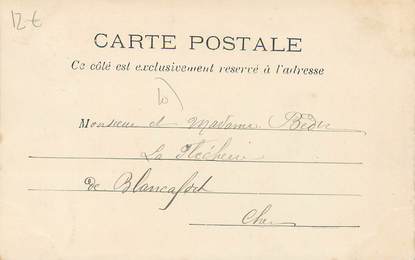 12 €
CARTE POSTALE
Ce côté est exclusivement réservé à l'adresse
Monsieur et Madame
La
de Blancafort
Cher